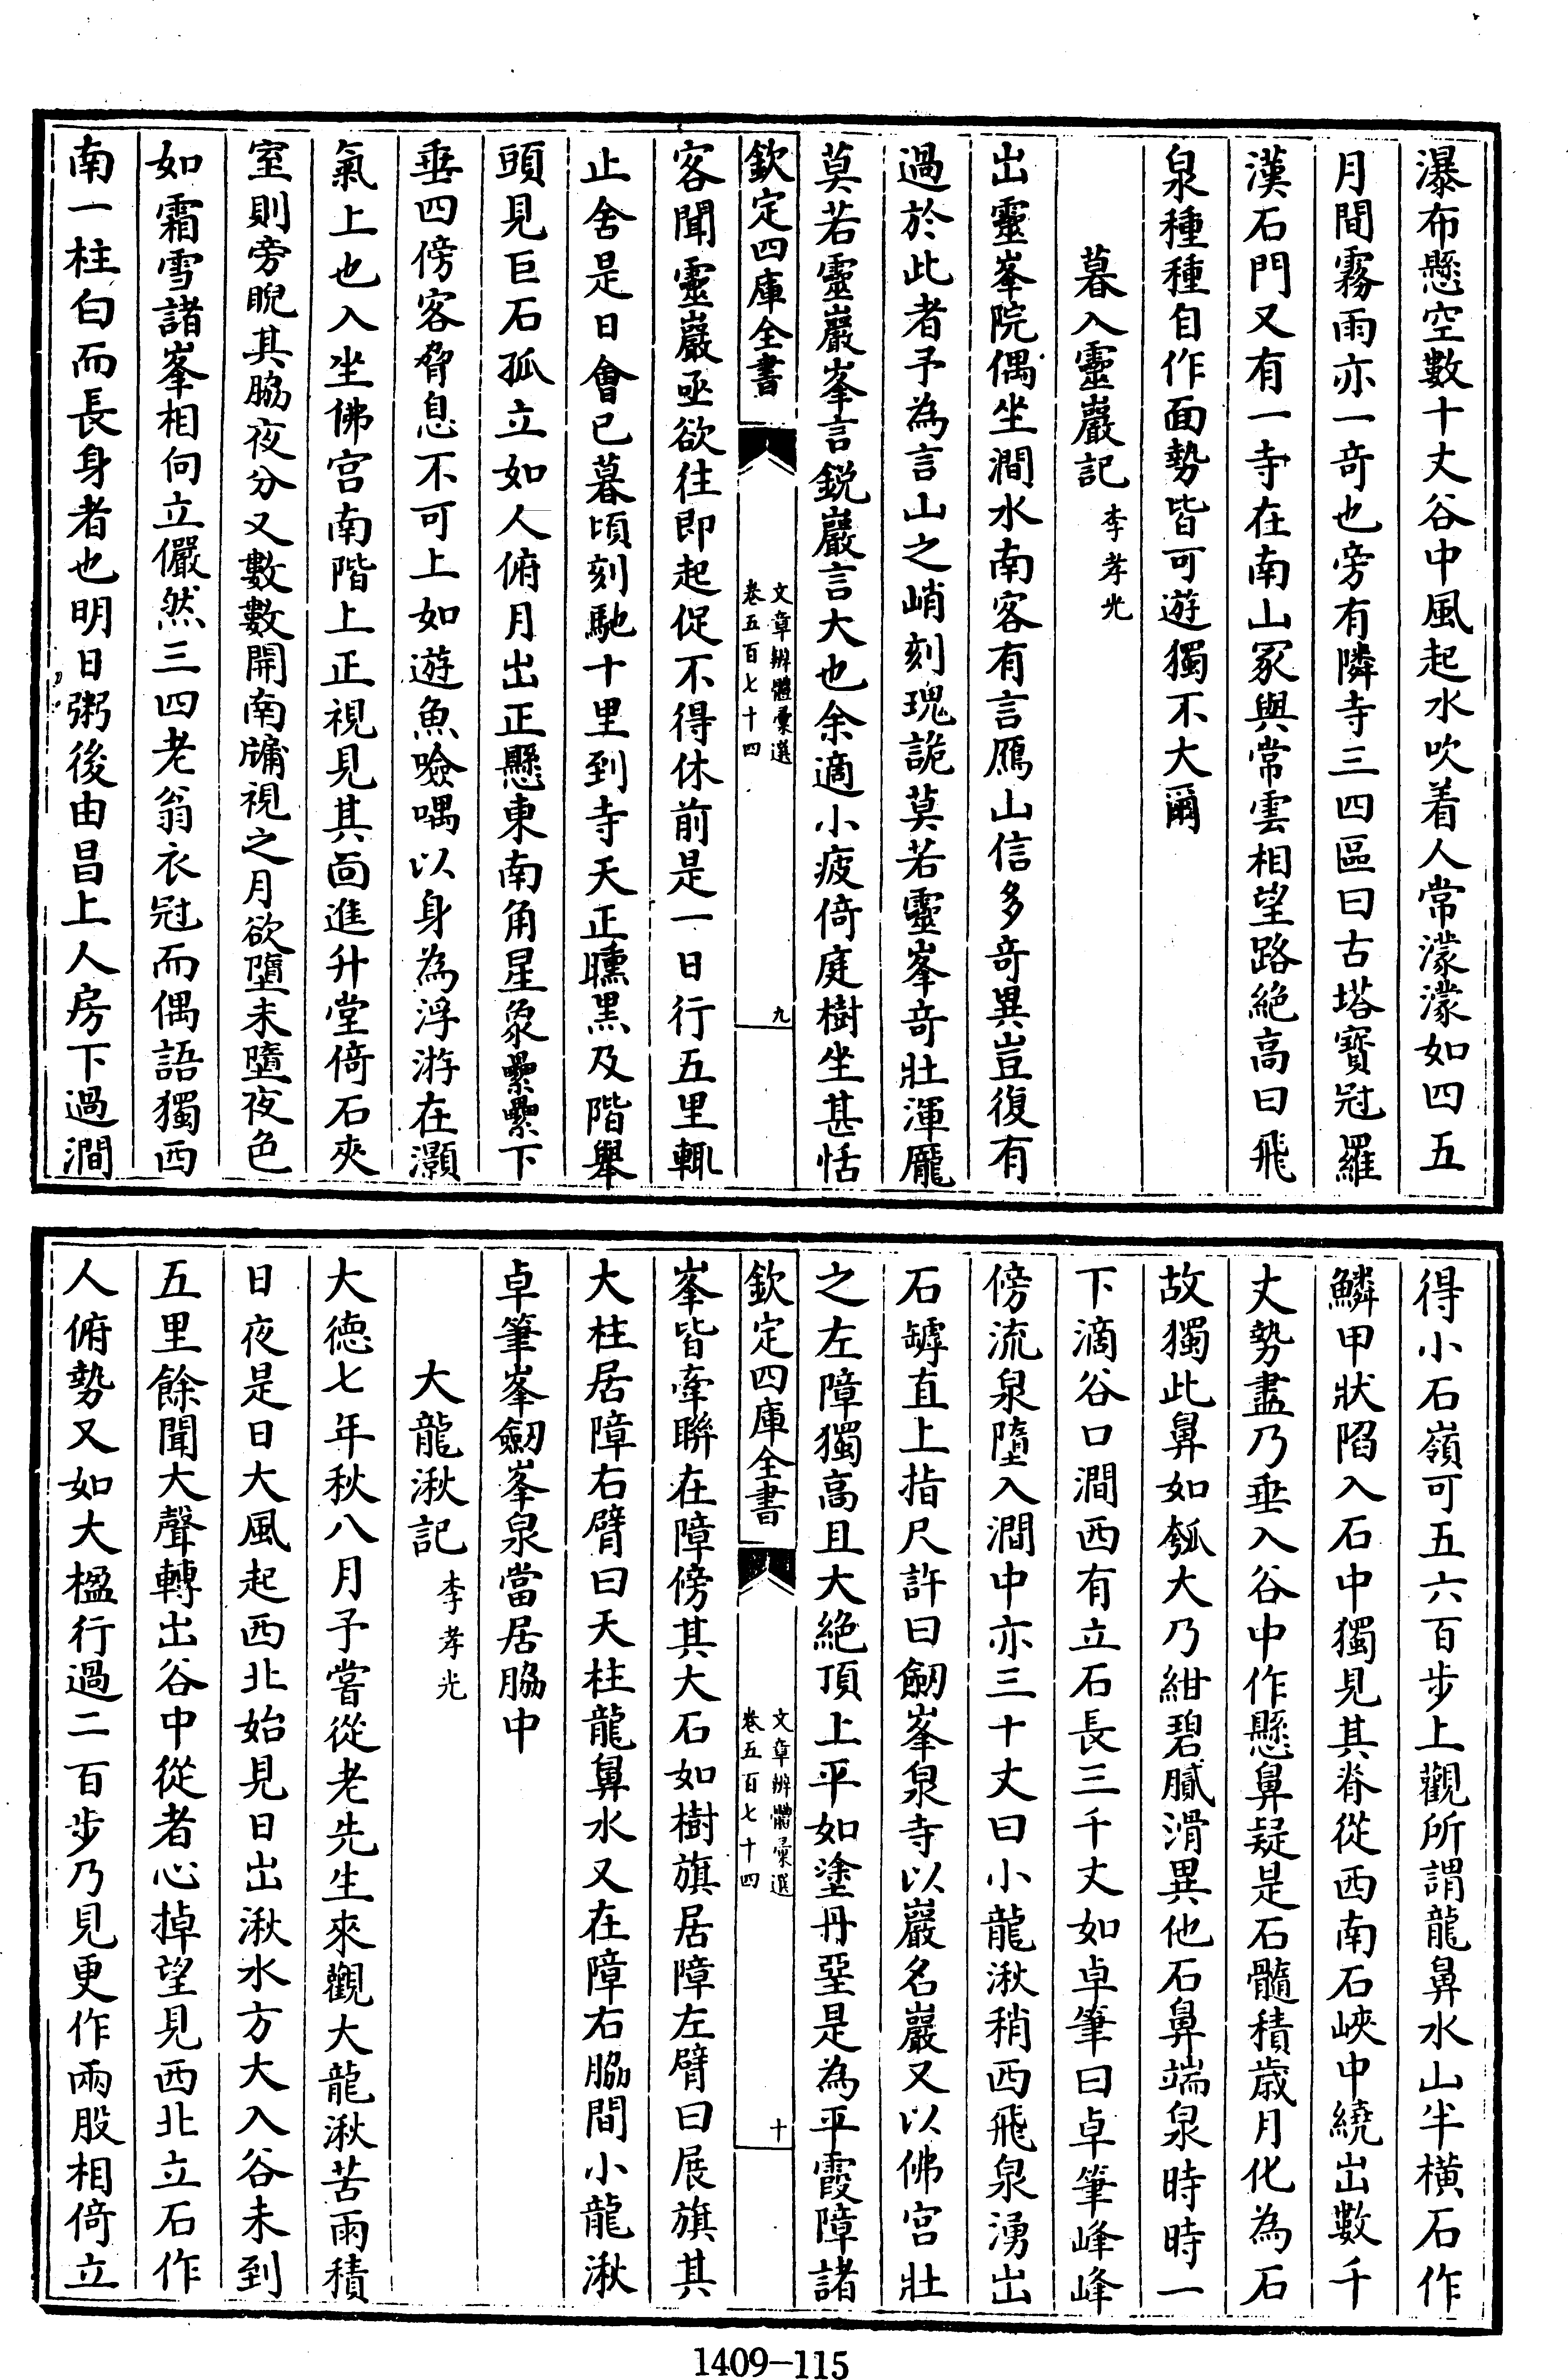 瀑布懸空數十丈谷中風起水吹着人常濛濛如四五
月間霧雨亦一竒也旁有隣寺三四區曰古塔寳冠羅
漢石門又有一寺在南山冢與常雲相望路絶髙曰飛
泉種種自作面勢皆可遊獨不大爾
暮入靈巖記 李孝光
出靈峯院偶坐澗水南客有言鴈山信多竒異豈復有
過於此者予為言山之峭刻瑰詭莫若靈峯竒壯渾龎
莫若靈巖峯言鋭巖言大也余適小疲倚庭樹坐甚恬
欽定四庫全書
文章辨體彙選
卷五百七十四
九
客聞靈巖亟欲往即起促不得休前是一日行五里輒
止舍是日㑹已暮頃刻馳十里到寺天正曛黒及階舉
頭見巨石孤立如人俯月出正懸東南角星象纍纍下
垂四傍客脅息不可上如遊魚噞喁以身為浮游在灝
氣上也入坐佛宫南階上正視見其面進升堂倚石夾
室則旁睨其脇夜分又數數開南牖視之月欲墮未墮夜色
如霜雪諸峯相向立儼然三四老翁衣冠而偶語獨西
南一柱白而長身者也明日粥後由昌上人房下過澗
得小石嶺可五六百步上觀所謂龍鼻水山半横石作
鱗甲狀䧟入石中獨見其脊從西南石峽中繞出數千
丈勢盡乃垂入谷中作懸鼻疑是石髓積歲月化為石
故獨此鼻如瓠大乃紺碧膩滑異他石鼻端泉時時一
下滴谷口澗西有立石長三千丈如卓筆曰卓筆峰峰
傍流泉墮入澗中亦三十丈曰小龍湫稍西飛泉湧出
石罅直上指尺許曰劒峯泉寺以巖名巖又以佛宫壯
之左障獨髙且大絶頂上平如塗丹堊是為平霞障諸
欽定四庫全書
文章辨體彙選
卷五百七十四
十
峯皆牽聨在障傍其大石如樹旗居障左臂曰展旗其
大柱居障右臂曰天柱龍鼻水又在障右脇間小龍湫
卓筆峯劒峯泉當居脇中
大龍湫記 李孝光
大徳七年秋八月予嘗從老先生來觀大龍湫苦雨積
日夜是日大風起西北始見日出湫水方大入谷未到
五里餘聞大聲轉出谷中從者心掉望見西北立石作
人俯勢又如大楹行過二百步乃見更作兩股相倚立
1409-115